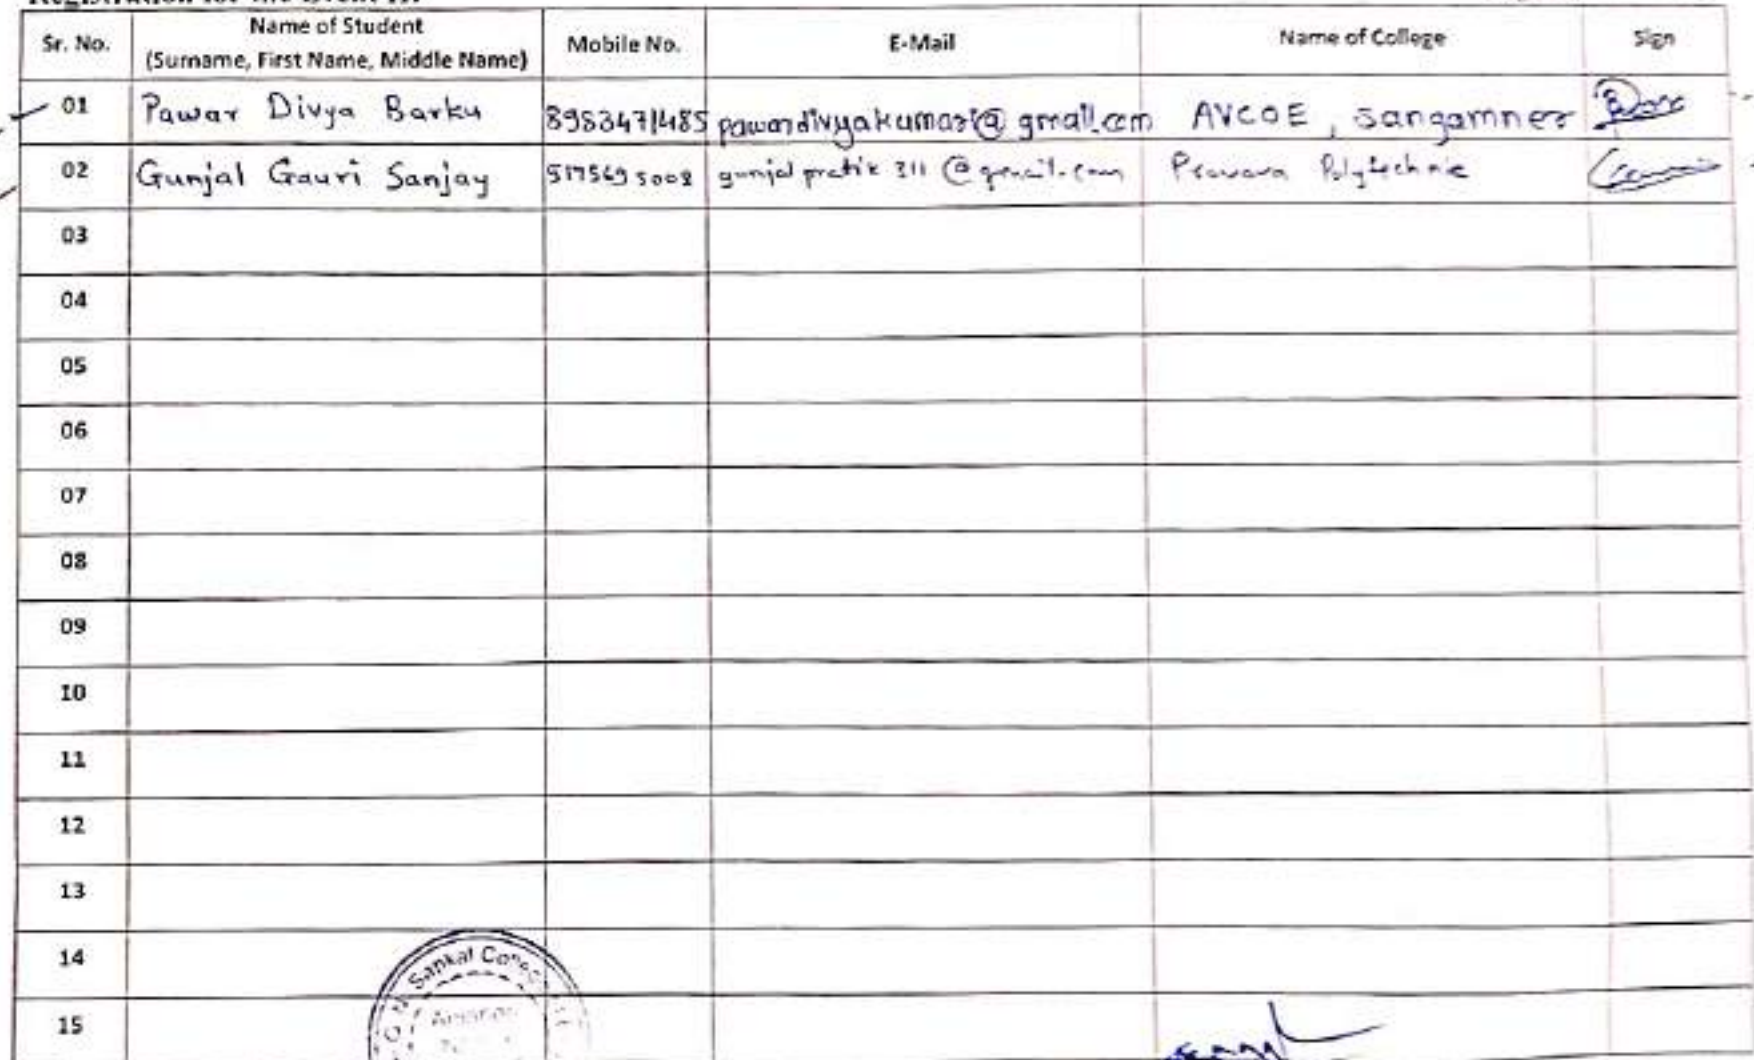 Registration for the Event is:
Sr. No. Name of Student (Surname, First Name, Middle Name) Mobile No. E-Mail Name of College Sign
01 Pawar Divya Barku 8953471485 pawardivyakumari@gmail.com AVCOE, Sangamner
02 Gunjal Gauri Sanjay 5175695008 gunjalpratik311@gmail.com Pravara Polytechnic
03
04
05
06
07
08
09
10
11
12
13
14
15
Sapkal